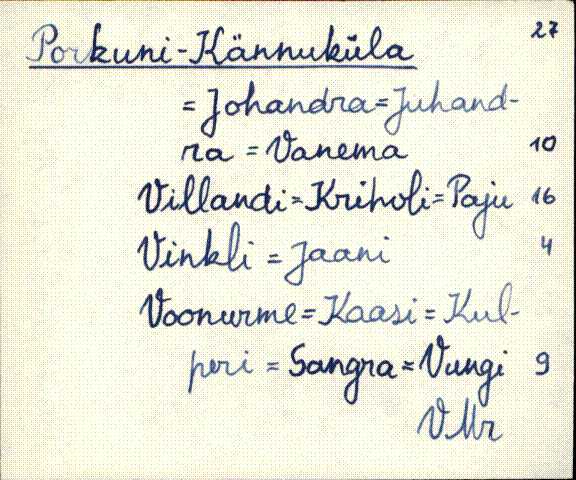 Porkuni-Kännuküla 27
= Johandra = Juhand-
ra = Vanema 10
Villandi = Kriholi = Paju 16
Vinkli = Jaani 4
Voonurme = Kaasi = Kul-
peri = Sangra = Vungi 9
VMr